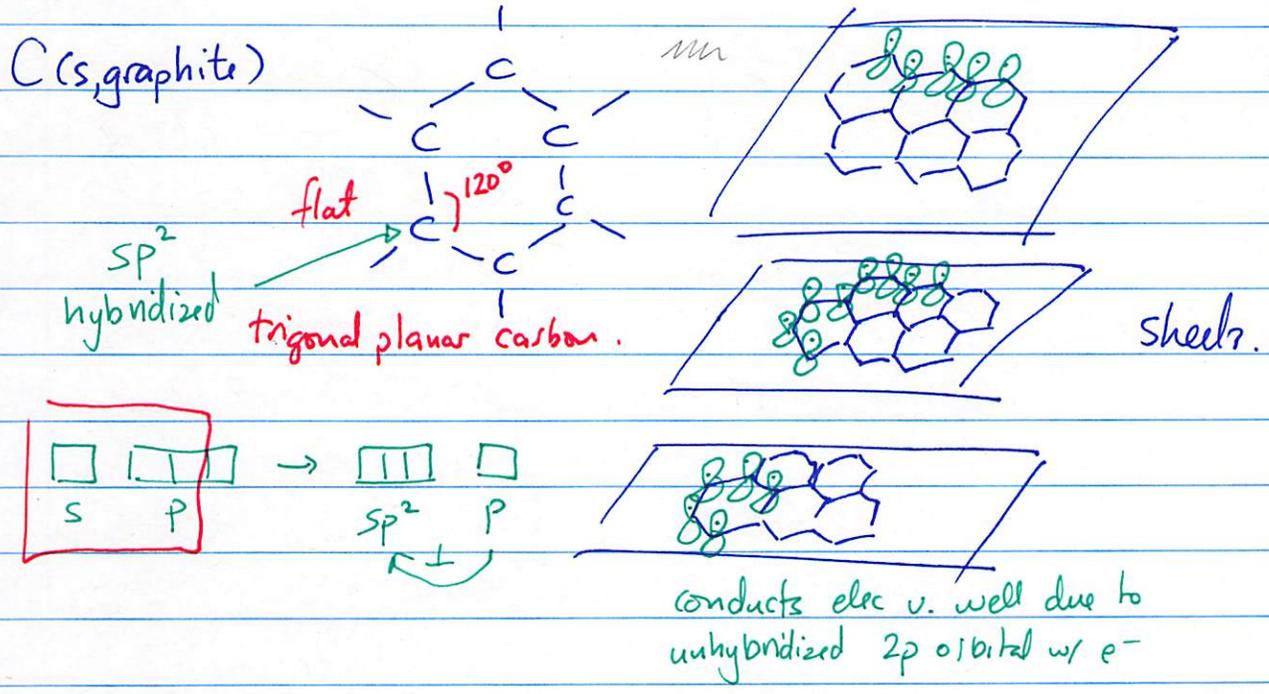 C(s, graphite)
C
C C
120°
flat
C
C
sp²
hybridized
C
trigonal planar carbon.
sheets.
s p → sp² p
⊥
conducts elec v. well due to
unhybridized 2p orbital w/ e⁻